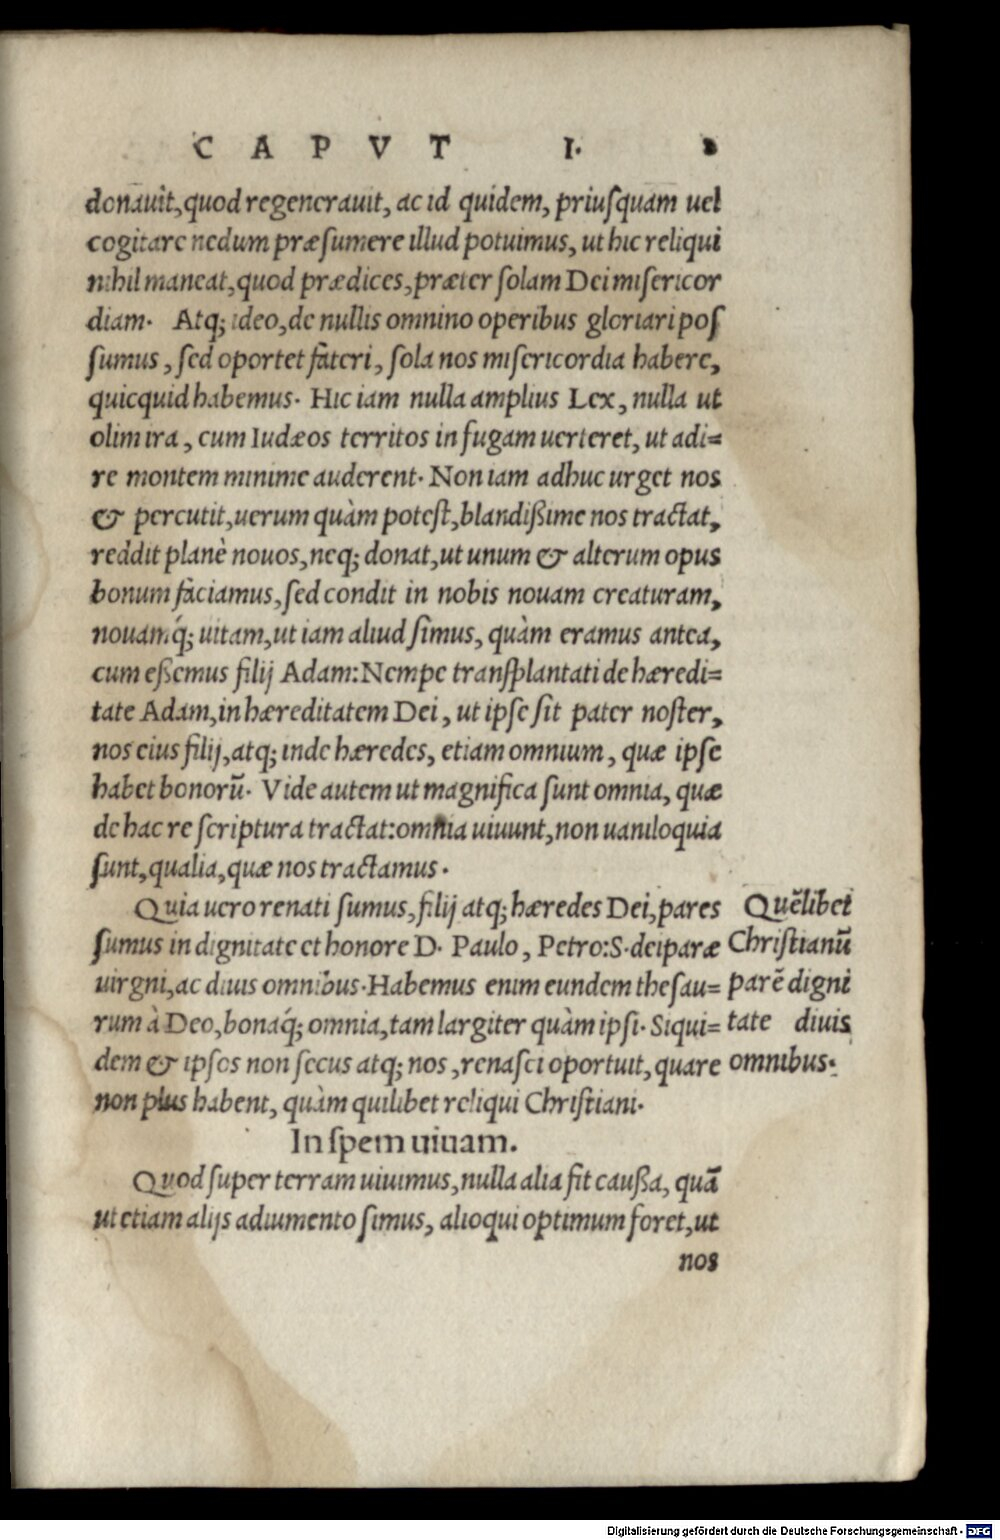 CAPVT I. 8
donauit, quod regenerauit, ac id quidem, priuſquam uel
cogitare nedum præſumere illud potuimus, ut hic reliqui
nihil maneat, quod prædices, præter ſolam Dei miſericor
diam. Atq; ideo, de nullis omnino operibus gloriari poſ
ſumus, ſed oportet fateri, ſola nos miſericordia habere,
quicquid habemus. Hic iam nulla amplius Lex, nulla ut
olim ira, cum Iudæos territos in fugam uerteret, ut adi=
re montem minime auderent. Non iam adhuc urget nos
& percutit, uerum quàm poteſt, blandißime nos tractat,
reddit planè nouos, neq; donat, ut unum & alterum opus
bonum faciamus, ſed condit in nobis nouam creaturam,
nouamq́; uitam, ut iam aliud ſimus, quàm eramus antea,
cum eßemus filij Adam: Nempe tranſplantati de hæredi=
tate Adam, in hæreditatem Dei, ut ipſe ſit pater noſter,
nos eius filij, atq; inde hæredes, etiam omnium, quæ ipſe
habet bonorũ. Vide autem ut magnifica ſunt omnia, quæ
de hac re ſcriptura tractat: omnia uiuunt, non uaniloquia
ſunt, qualia, quæ nos tractamus.
Quia uero renati ſumus, filij atq; hæredes Dei, pares
ſumus in dignitate et honore D. Paulo, Petro: S. deiparæ
uirgni, ac diuis omnibus. Habemus enim eundem theſau=
rum à Deo, bonaq́; omnia, tam largiter quàm ipſi. Siqui=
dem & ipſos non ſecus atq; nos, renaſci oportuit, quare
non plus habent, quàm quilibet reliqui Chriſtiani.
Quẽlibet
Chriſtianũ
parẽ digni
tate diuis
omnibus.
In ſpem uiuam.
Quod ſuper terram uiuimus, nulla alia fit cauſſa, quã
ut etiam alijs adiumento ſimus, alioqui optimum foret, ut
nos
Digitalisierung gefördert durch die Deutsche Forschungsgemeinschaft - DFG